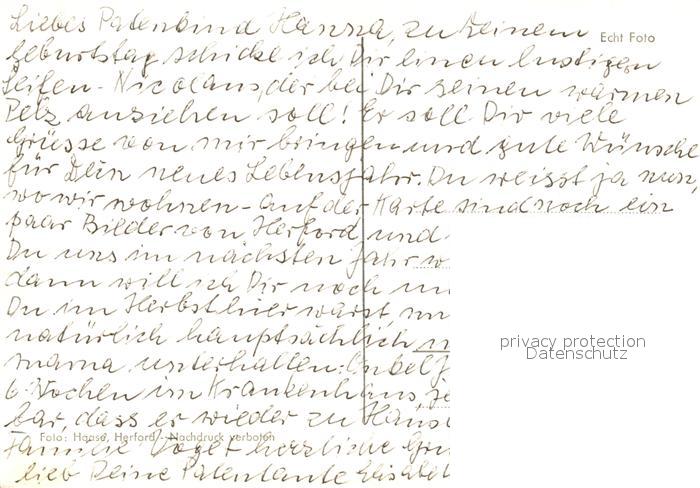 Liebes Patenkind Hanna, zu Deinem
Echt Foto
Geburtstag schicke ich Dir einen lustigen
Seifen-Nicolaus, der bei Dir seinen warmen
Pelz ausziehen soll! Er soll Dir viele
Grüsse von mir bringen und gute Wünsche
für Dein neues Lebensjahr. Du weisst ja nun,
wo wir wohnen - auf der Karte sind noch ein
paar Bilder von Herford und
Du uns im nächsten Jahr
dann will ich Dir noch
Du im Herbst hier warst,
natürlich hauptsächlich
mama unterhalten: Onkel
6 Wochen im Krankenhaus,
bar, dass er wieder zu Haus
Foto: Haase, Herford - Nachdruck verboten
Familie Vogel herzliche
lieb Deine Patentante
privacy protection
Datenschutz